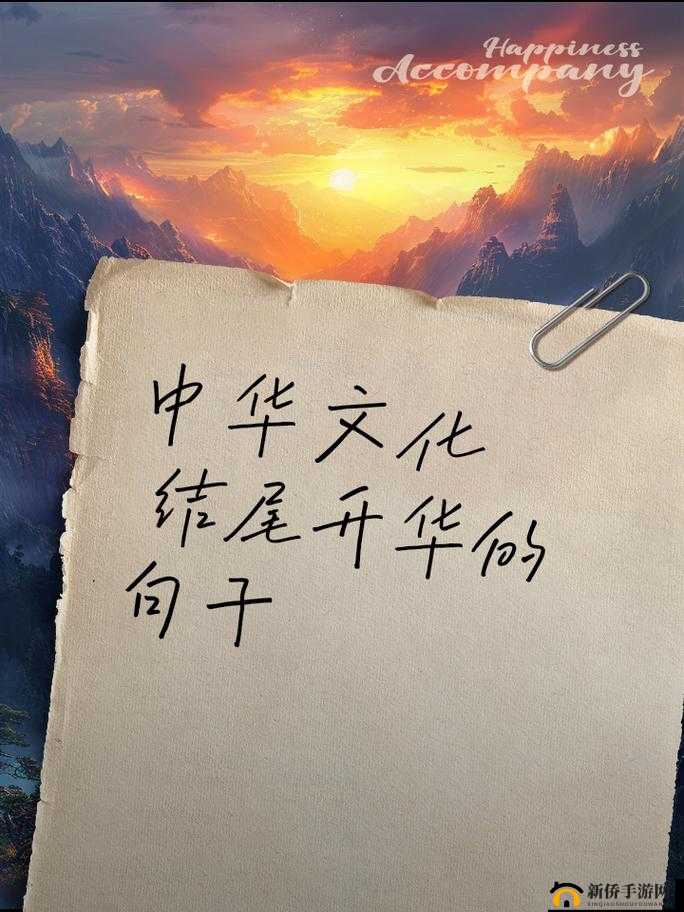 Happiness
Accompany
中华文化
结尾开华的
句子
新侨手游网
XINQIAOSHOUYOUWANG